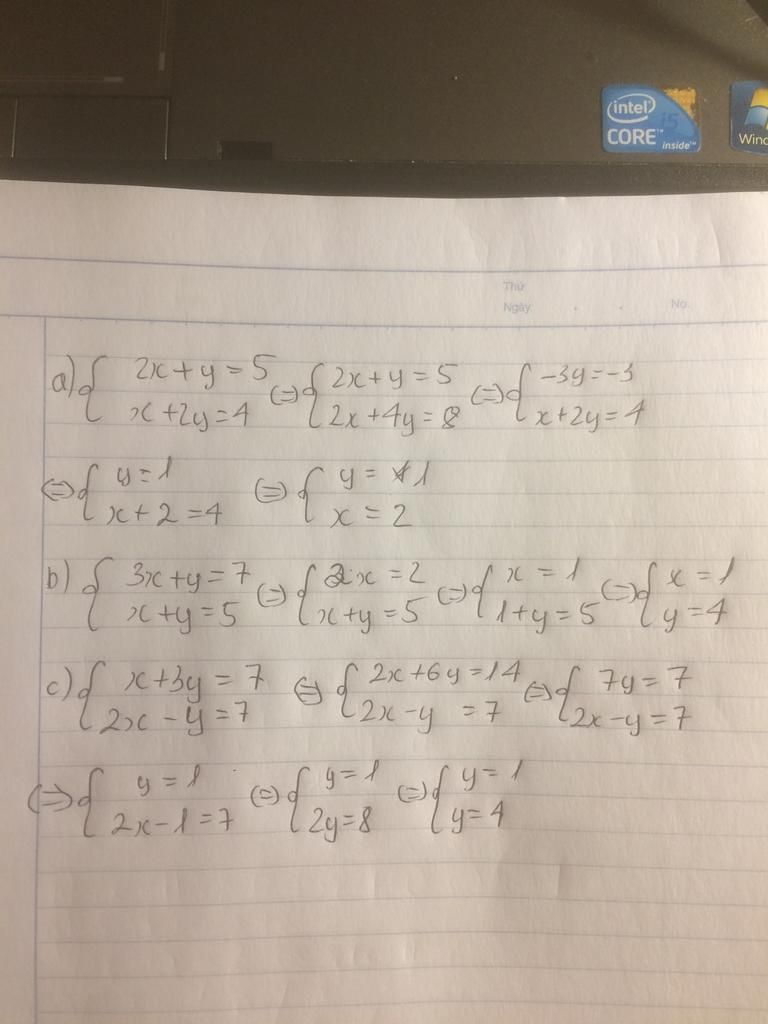 intel i5
CORE™ inside™
Wind
Thứ
Ngày . . No.
a) { 2x + y = 5 ; x + 2y = 4 (=) { 2x + y = 5 ; 2x + 4y = 8 (=) { -3y = -3 ; x + 2y = 4
(=) { y = 1 ; x + 2 = 4 (=) { y = 1 ; x = 2
b) { 3x + y = 7 ; x + y = 5 (=) { 2x = 2 ; x + y = 5 (=) { x = 1 ; 1 + y = 5 (=) { x = 1 ; y = 4
c) { x + 3y = 7 ; 2x - y = 7 (=) { 2x + 6y = 14 ; 2x - y = 7 (=) { 7y = 7 ; 2x - y = 7
(=) { y = 1 ; 2x - 1 = 7 (=) { y = 1 ; 2y = 8 (=) { y = 1 ; y = 4